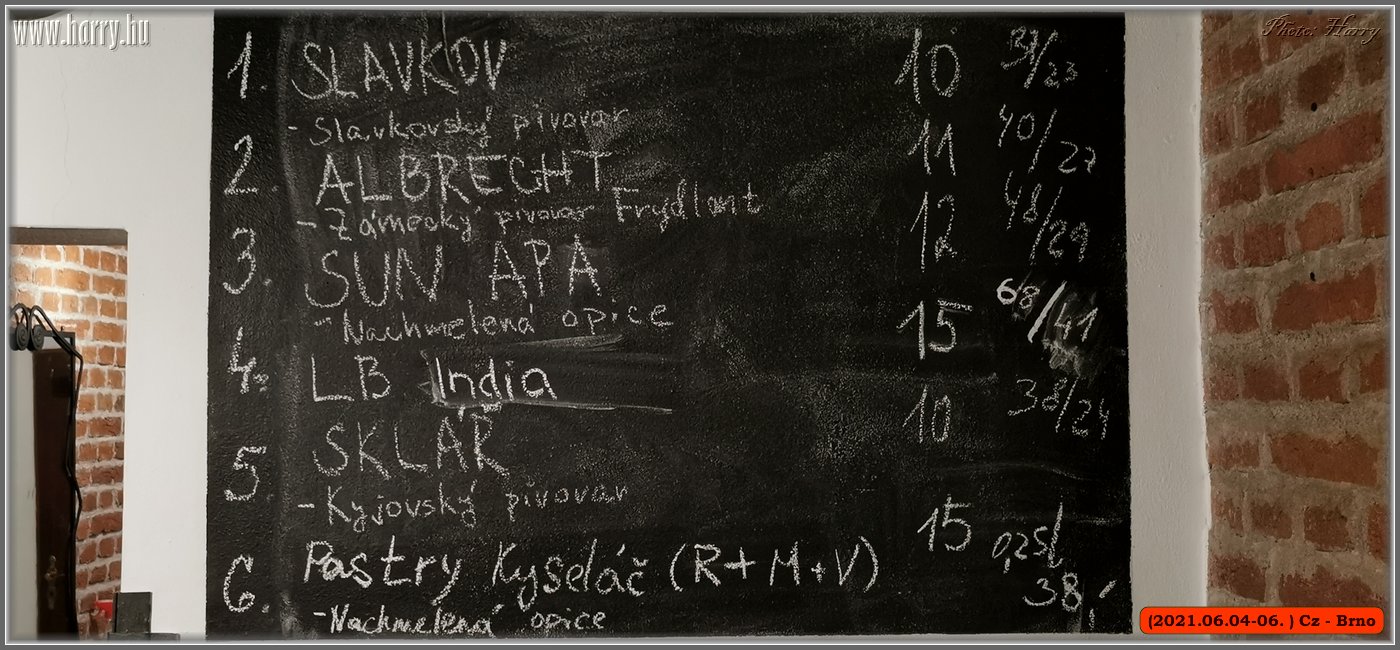 www.harry.hu
Photo: Harry
1. SLAVKOV 10 39/23
- Slavkovský pivovar
2. ALBRECHT 11 40/27
- Zámecký pivovar Frydlant
3. SUN APA 12 48/29
- Nachmelená opice
4. LB India 15 68/41
5. SKLÁŘ 10 38/24
- Kyjovský pivovar
6. Pastry Kyseláč (R+M+V) 15 0,25l 38,-
- Nachmelená opice
(2021.06.04-06. ) Cz - Brno